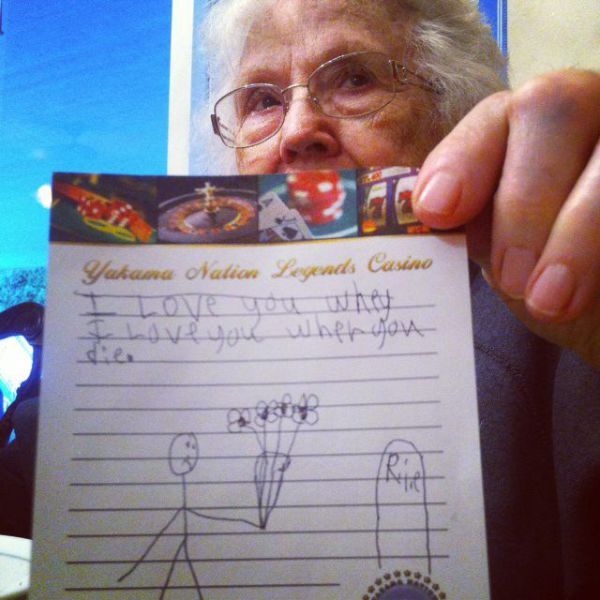 Yakama Nation Legends Casino
I Love you whey
I love you when you
die.
R.i.P